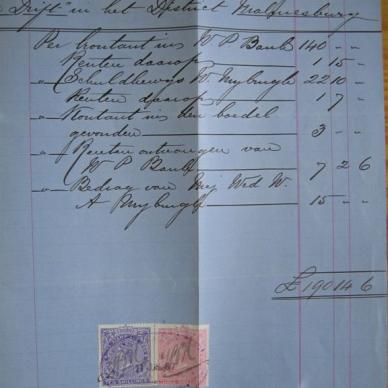 Drift" in het District Malmesbury
Per Kontant in W P Bank 140 - -
Renten daarop 1 15 -
" Schuldbewys W Myburgh 22 10 -
Renten daarop 1 7 -
" Kontant in den boedel
gevonden 3 - -
" Renten ontvangen van
W P Bank 7 2 6
" Bedrag van Mej Wed W.
A Myburgh 15 - -
£ 190 14 6
TEN SHILLINGS